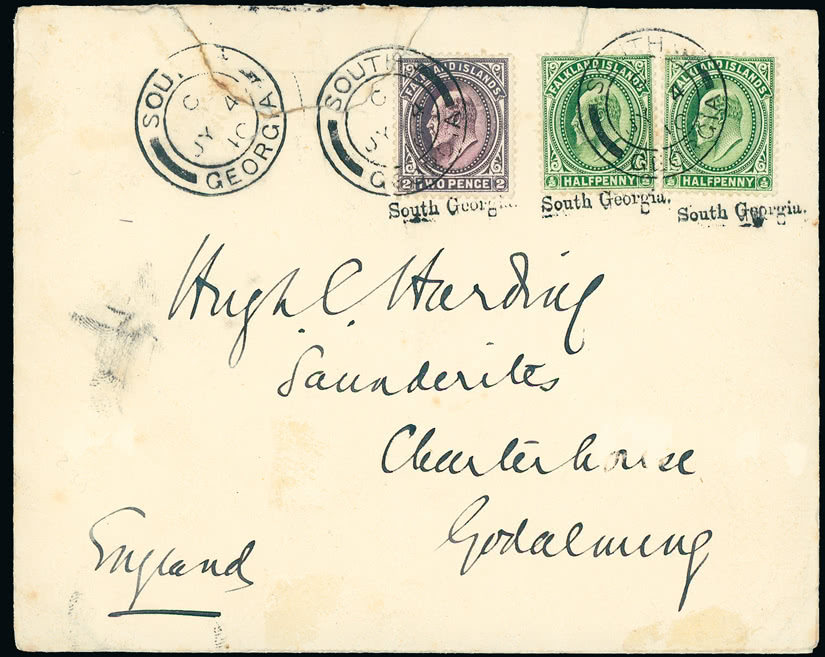 SOU GEORGIA
C
JY 4
10
SOUTH G
C
JY 4
FALKLAND ISLANDS
2 TWO PENCE 2
SOUTH GEORGIA
4
FALKLAND ISLANDS
½ HALFPENNY ½
FALKLAND ISLANDS
½ HALFPENNY ½
South Georgia.
South Georgia.
South Georgia.
Hugh C. Harding
Saunderites
Charterhouse
Godalming
England